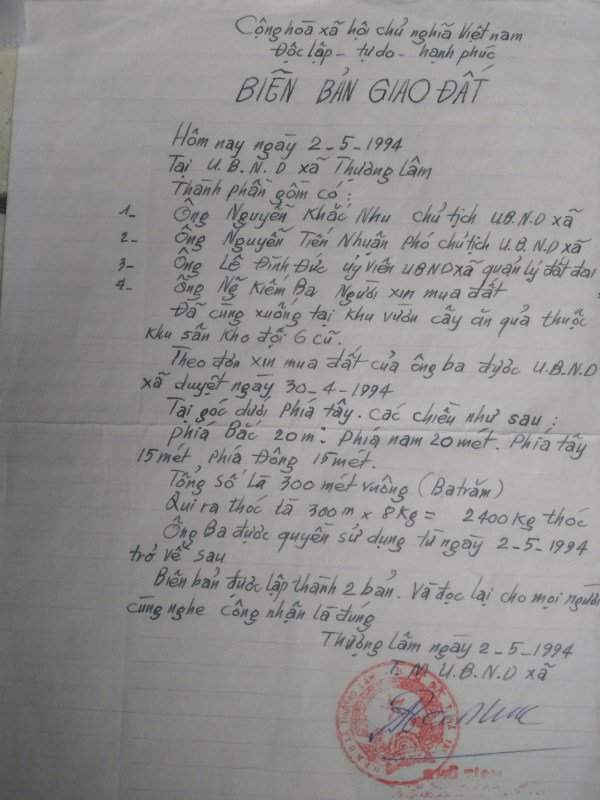 Cộng hoà xã hội chủ nghĩa Việt nam
Độc lập - tự do - hạnh phúc
BIÊN BẢN GIAO ĐẤT
Hôm nay ngày 2-5-1994
Tại U.B.N.D xã Thượng Lâm
Thành phần gồm có :
1- Ông Nguyễn Khắc Nhu chủ tịch U.B.N.D xã
2- Ông Nguyễn Tiến Nhuận Phó chủ tịch U.B.N.D xã
3- Ông Lê Đình Đức ủy viên UBND xã quản lý đất đai
4- Ông Ng Kiêm Ba Người xin mua đất
Đã cùng xuống tại khu vườn cây ăn quả thuộc
khu sân kho đội 6 cũ.
Theo đơn xin mua đất của ông ba được U.B.N.D
xã duyệt ngày 30-4-1994
Tại góc dưới phía tây. các chiều như sau :
phía Bắc 20m. Phía nam 20 mét. Phía tây
15 mét phía Đông 15 mét.
Tổng số là 300 mét vuông (Ba trăm)
Qui ra thóc là 300m x 8kg = 2400kg thóc
Ông Ba được quyền sử dụng từ ngày 2-5-1994
trở về sau
Biên bản được lập thành 2 bản. Và đọc lại cho mọi người
cùng nghe công nhận là đúng
Thượng lâm ngày 2-5-1994
T.M U.B.N.D xã